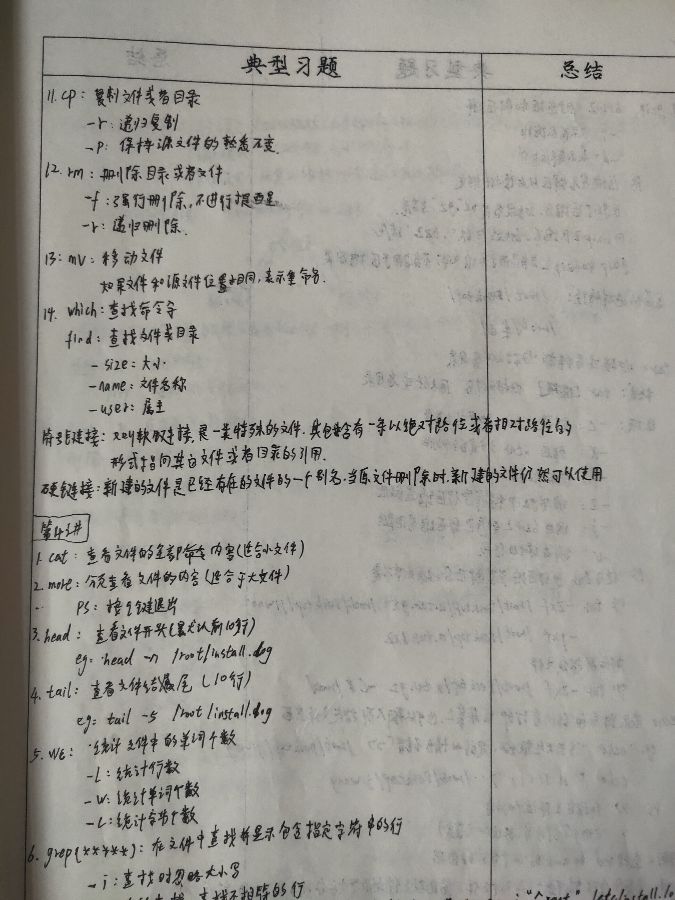 典型习题
总结
11. cp：复制文件或者目录
-r：递归复制
-p：保持源文件的熟悉不变
12. rm：删除目录或者文件
-f：强行删除，不进行提醒
-r：递归删除
13：mv：移动文件
如果文件和源文件位置相同，表示重命名.
14. which：查找命令
find：查找文件或目录
-size：大小
-name：文件名称
-user：属主
符号链接：又叫软链接，是一类特殊的文件，其包含有一条以绝对路径或者相对路径的
形式指向其它文件或者目录的引用.
硬链接：新建的文件是已经存在的文件的一个别名，当原文件删除时，新建的文件仍然可以使用
第4讲
1. cat：查看文件的全部内容(适合小文件)
2. more：分页查看文件的内容(适合于大文件)
PS：按q键退出
3. head：查看文件开头(默认前10行)
eg：head -n /root/install.log
4. tail：查看文件结尾(10行)
eg：tail -5 /root/install.log
5. wc：统计文件中的单词个数
-l：统计行数
-w：统计单词个数
-c：统计字节个数
6. grep(*****)：在文件中查找并显示包含指定字符串的行
-i：查找时忽略大小写
查找不相等的行